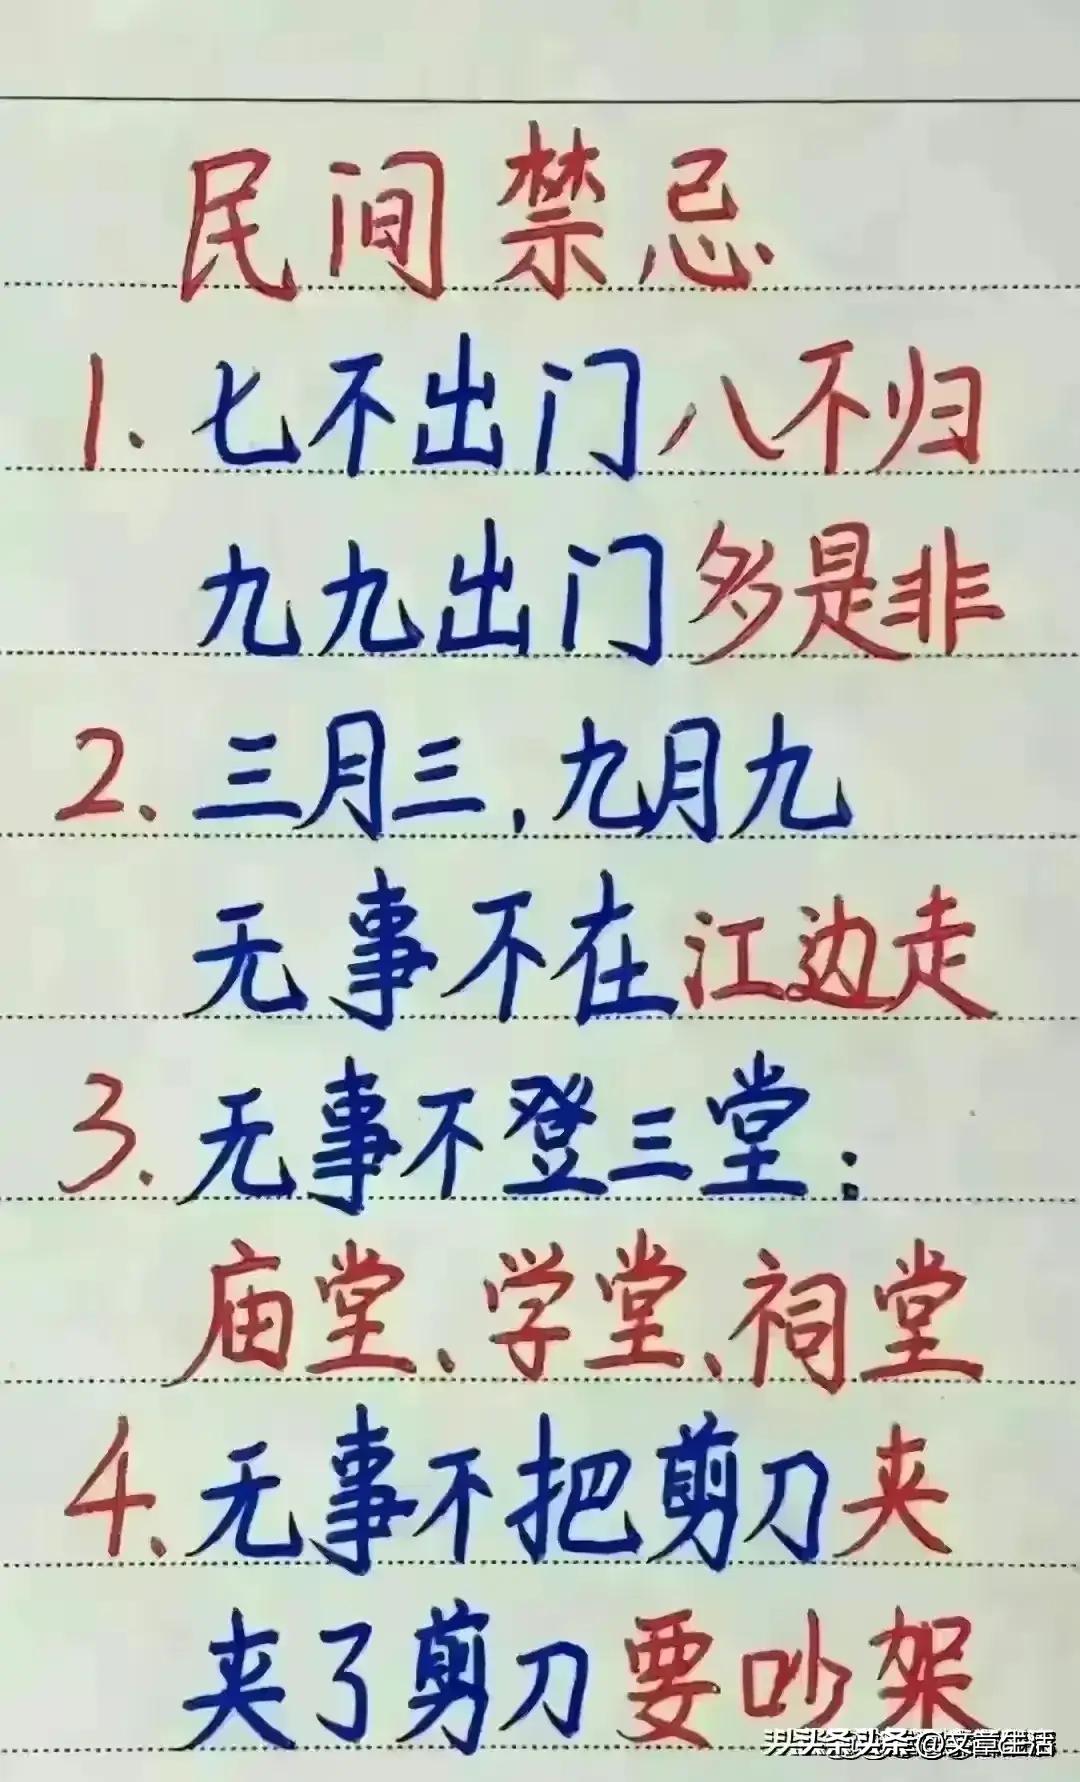 民间禁忌
1.七不出门八不归
九九出门多是非
2.三月三,九月九
无事不在江边走
3.无事不登三堂:
庙堂、学堂、祠堂
4.无事不把剪刀夹
夹了剪刀要吵架
头条 @文章生活